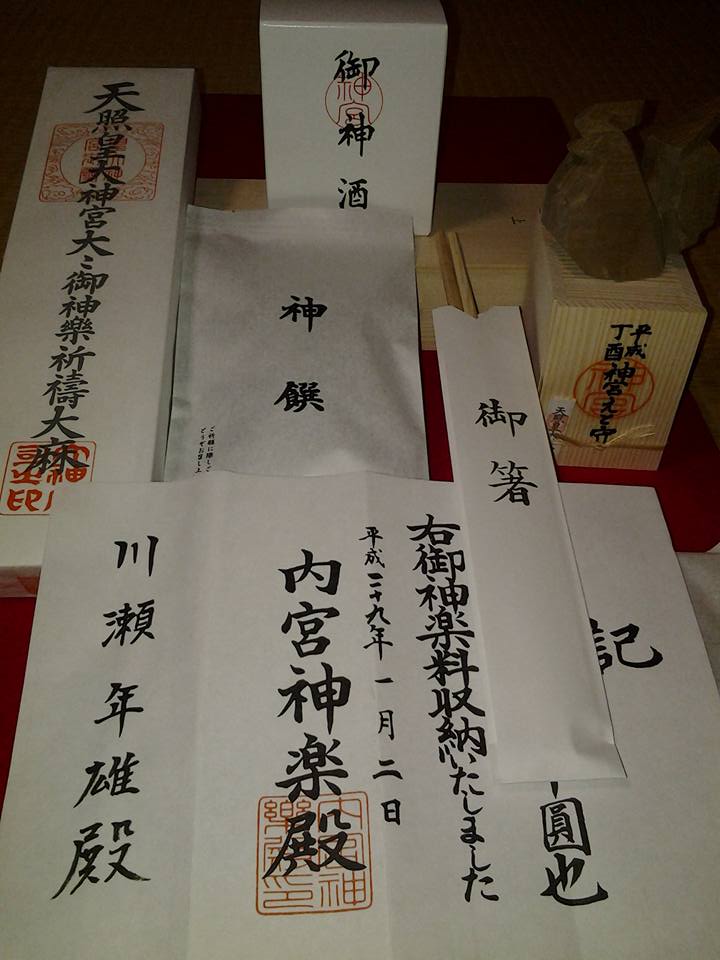 御神酒
神宮
天照皇大神宮大々御神樂祈禱大麻
神饌
御箸
平成
丁酉
神宮えと守
神宮
記
圓也
右御神楽料収納いたしました
平成二十九年一月二日
内宮神楽殿
川瀬年雄殿